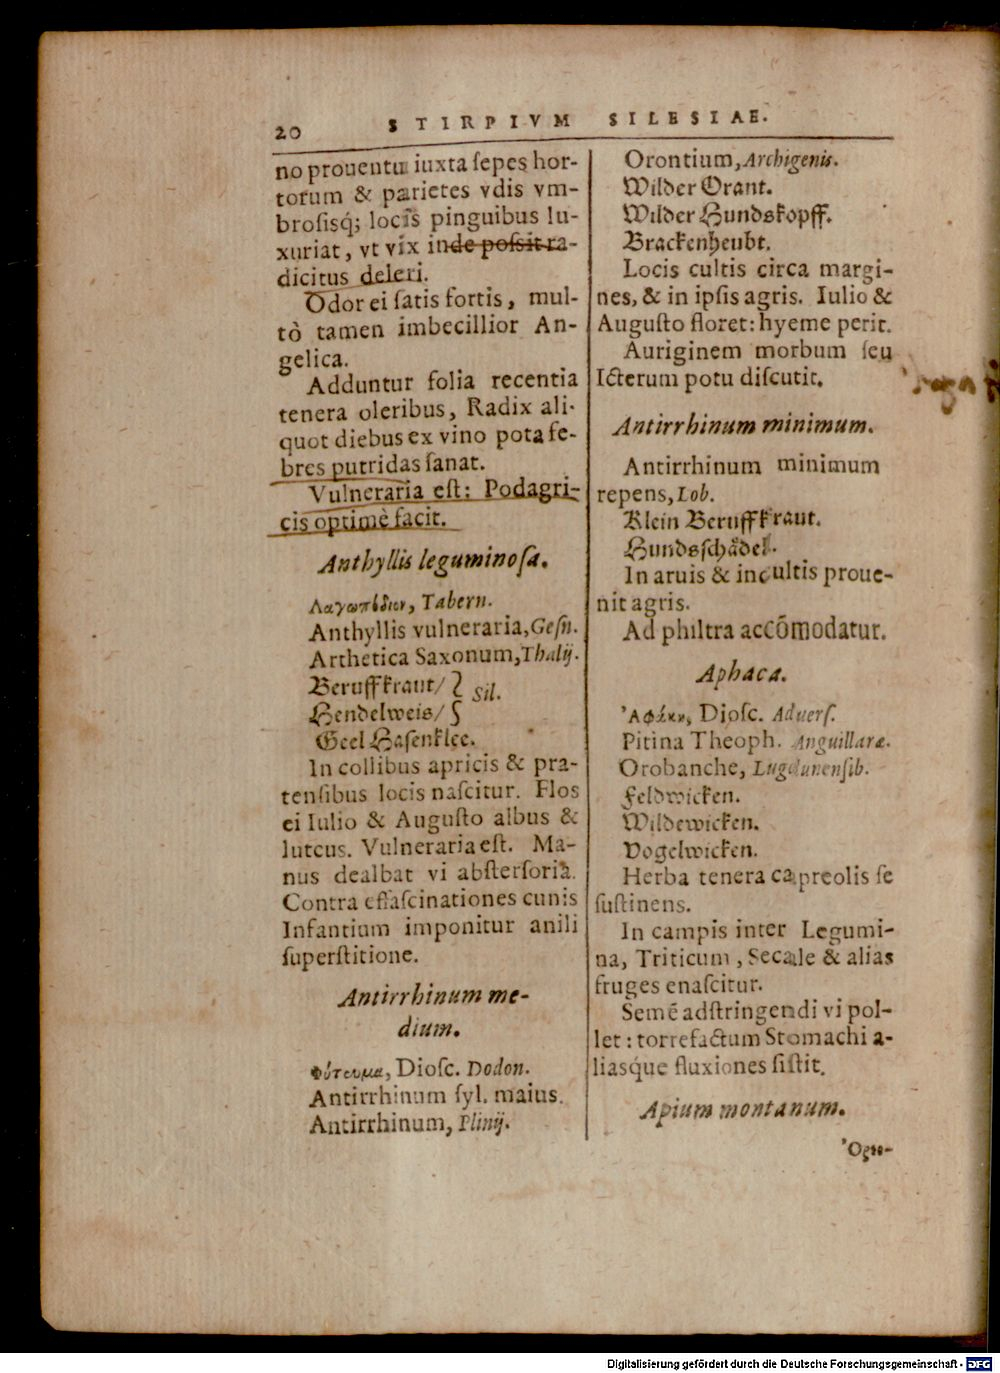 20 STIRPIVM SILESIAE.
no prouentu iuxta ſepes hor-
torum & parietes vdis vm-
broſisq́; locis pinguibus lu-
xuriat, vt vix inde poſsit ra-
dicitus deleri.
Odor ei ſatis fortis, mul-
tò tamen imbecillior An-
gelica.
Adduntur folia recentia
tenera oleribus, Radix ali-
quot diebus ex vino pota fe-
bres putridas ſanat.
Vulneraria eſt: Podagri-
cis optimè facit.
Anthyllis leguminoſa.
Λαγωπίδιον, Tabern.
Anthyllis vulneraria, Geſn.
Arthetica Saxonum, Thalij.
Beruffkraut/
Hendelweis/
Sil.
Geel Haſenklee.
In collibus apricis & pra-
tenſibus locis naſcitur. Flos
ei Iulio & Auguſto albus &
luteus. Vulneraria eſt. Ma-
nus dealbat vi abſterſoria.
Contra effaſcinationes cunis
Infantium imponitur anili
ſuperſtitione.
Antirrhinum me-
dium.
Φύτευμα, Dioſc. Dodon.
Antirrhinum ſyl. maius.
Antirrhinum, Plinij.
Orontium, Archigenis.
Wilder Orant.
Wilder Hundskopff.
Brackenheubt.
Locis cultis circa margi-
nes, & in ipſis agris. Iulio &
Auguſto floret: hyeme perit.
Auriginem morbum ſeu
Icterum potu diſcutit.
Antirrhinum minimum.
Antirrhinum minimum
repens, Lob.
Klein Beruffkraut.
Hundsſchådel.
In aruis & incultis proue-
nit agris.
Ad philtra accõmodatur.
Aphaca.
Ἀφάκη, Dioſc. Aduerſ.
Pitina Theoph. Anguillaræ.
Orobanche, Lugdunenſib.
Feldwicken.
Wildewicken.
Vogelwicken.
Herba tenera capreolis ſe
ſuſtinens.
In campis inter Legumi-
na, Triticum, Secale & alias
fruges enaſcitur.
Semẽ adſtringendi vi pol-
let: torrefactum Stomachi a-
liasq́ue fluxiones ſiſtit.
Apium montanum.
Digitalisierung gefördert durch die Deutsche Forschungsgemeinschaft - DFG